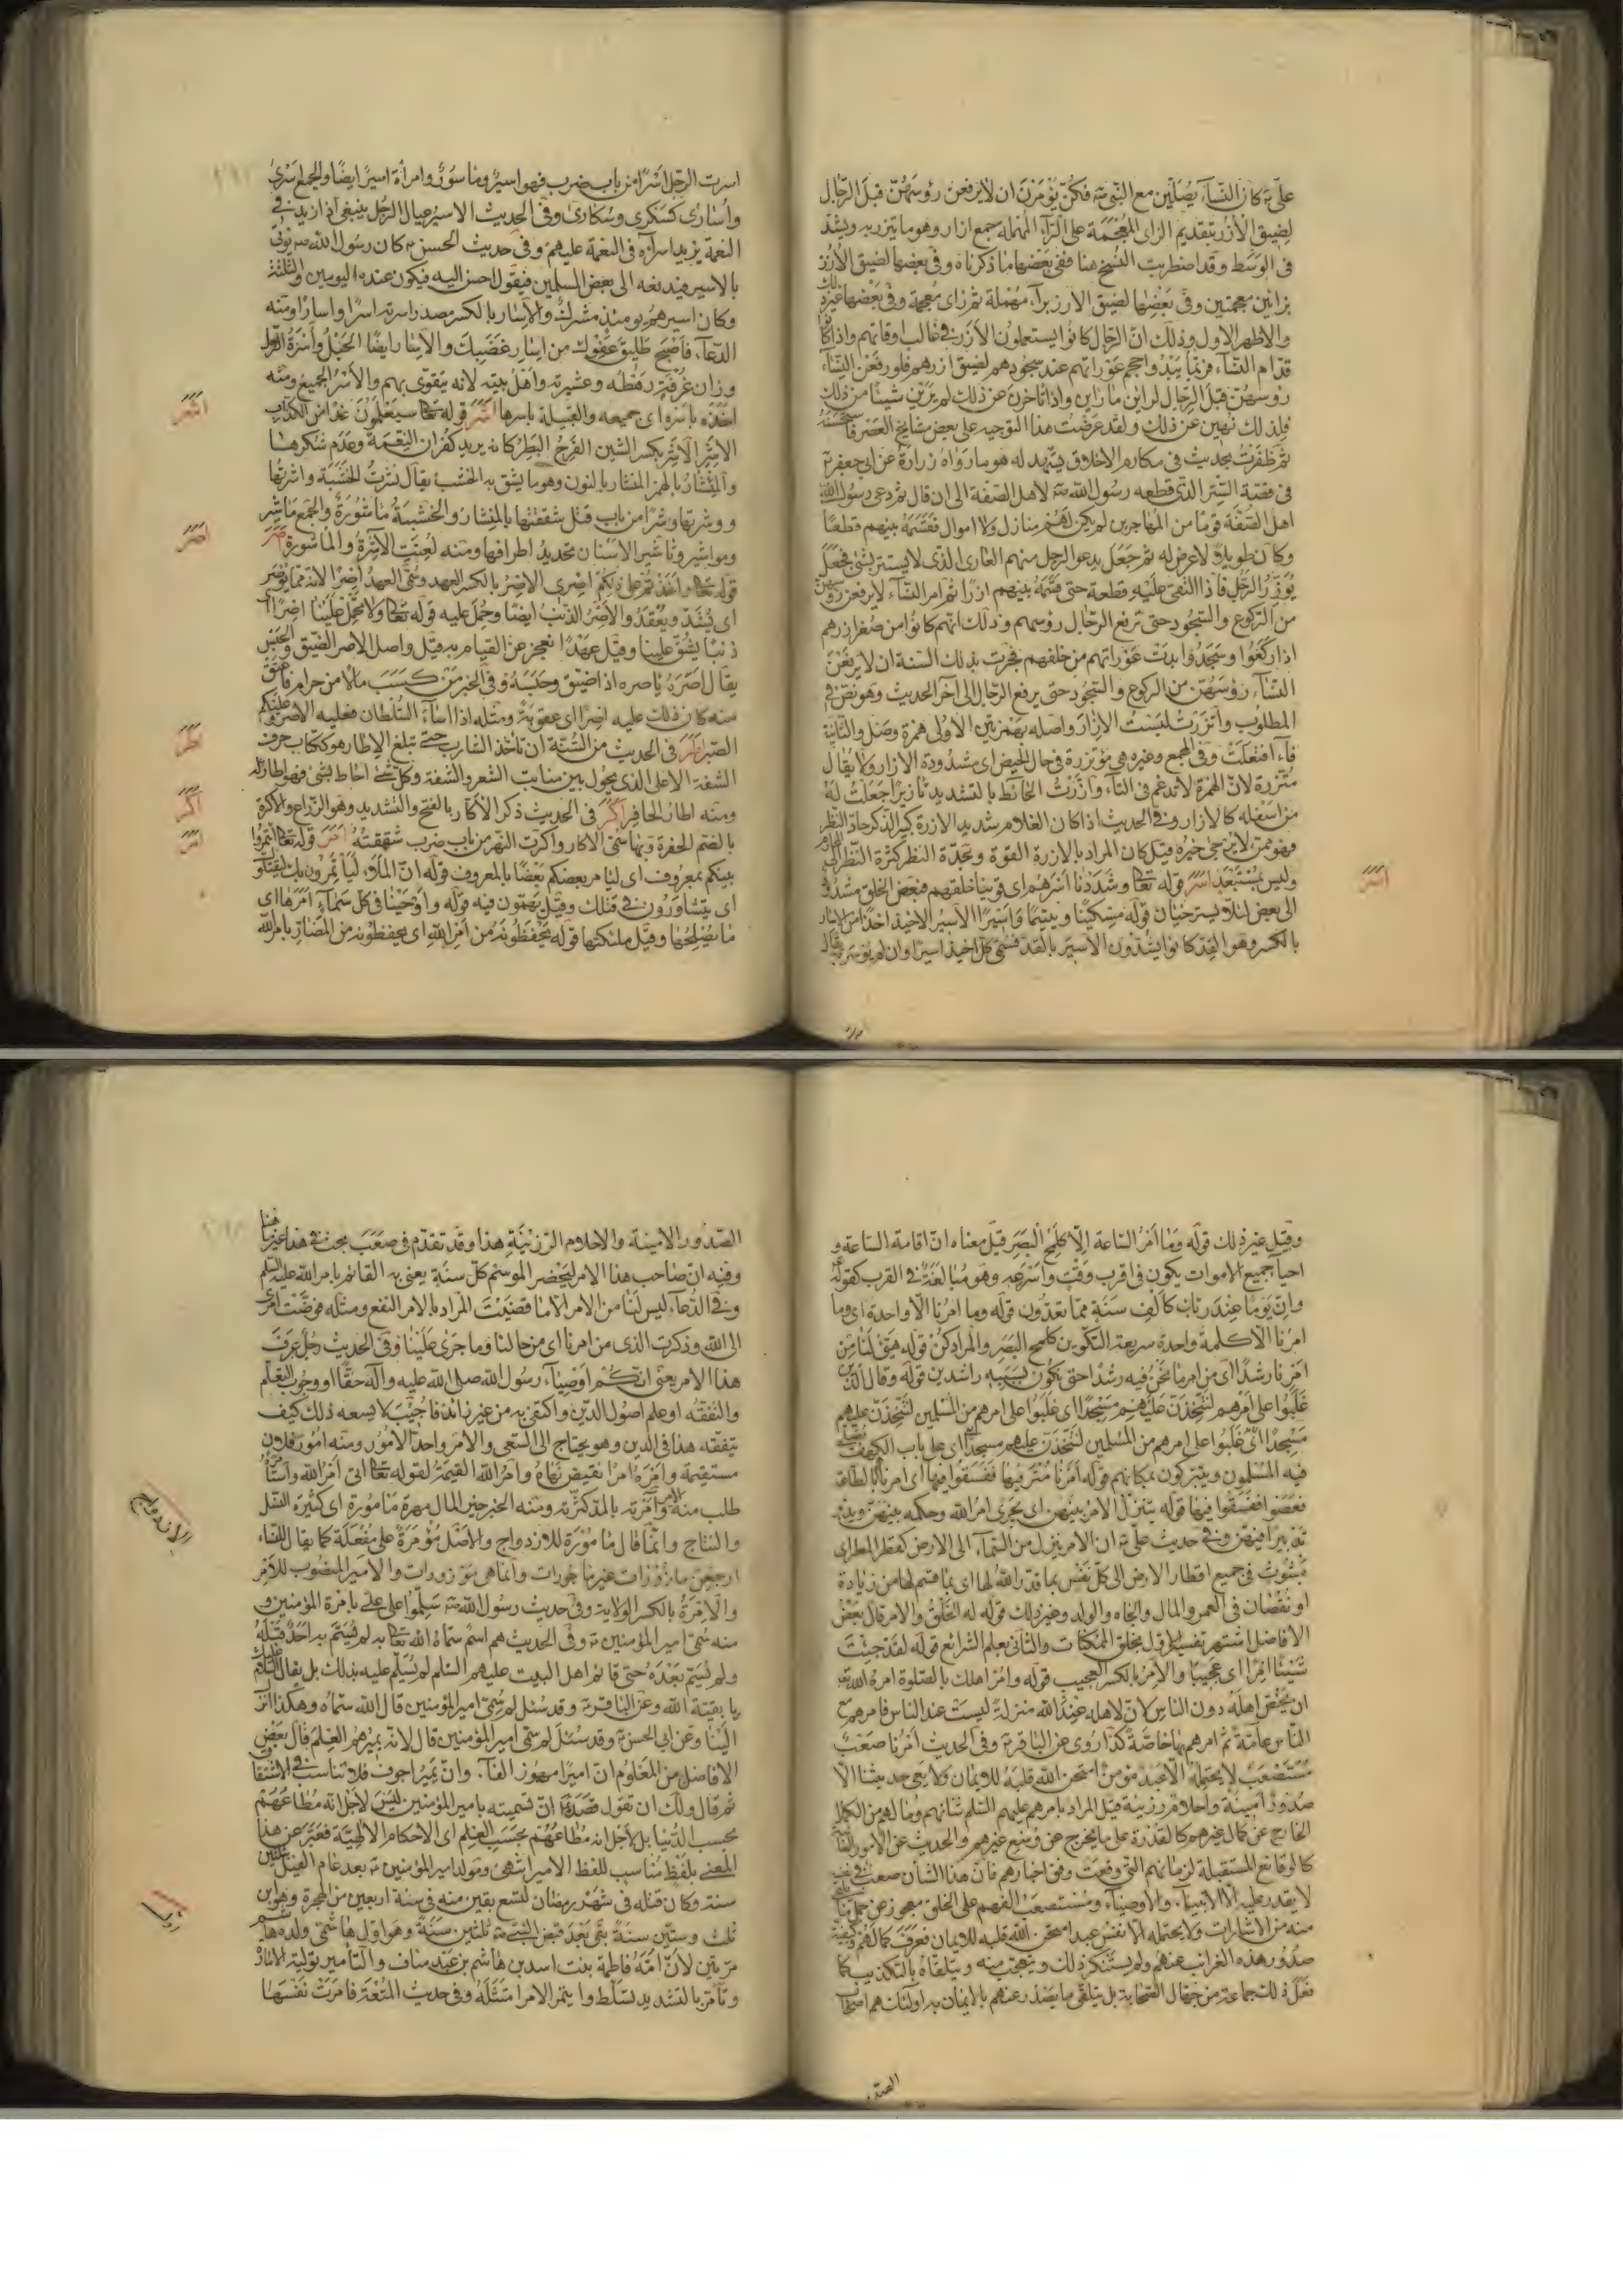 علىّ ع كان النساء يصلّين مع النبي ص فكنّ يؤمرن ان لا يرفعن رؤسهنّ قبل الرجال
لضيق الأزر بتقديم الزاى المعجمة على الراء المهملة جمع ازار وهو ما يتزر به ويشدّ
فى الوسط وقد اضطربت النسخ هنا ففى بعضها ما ذكرناه وفى بعضها لضيق الأزز
بزائين معجمتين وفى بعضها لضيق الارز براء مهملة ثم زاى معجمة وفى بعضها غير ذلك
والاظهر الاول وذلك انّ الرجال كانوا يستعملون الأزر فى غالب اوقاتهم واذا كانوا
قدّام النساء فربّما يبدو حجم عوراتهم عند سجودهم لضيق ازرهم فلو رفعن النساء
رؤسهنّ قبل الرجال لراين ما راين واذا تأخرن عن ذلك لم يرين شيئا من ذلك
فلذلك نهين عن ذلك ولقد عرضت هذا التوجيه على بعض مشايخ العصر فاستحسنه
ثم ظفرت بحديث فى مكارم الاخلاق يشهد له هو ما رواه زرارة عن ابى جعفر ع
فى قصّة الستر الذى قطعه رسول الله ص لاهل الصفة الى ان قال ثم دعى رسول الله
اهل الصفّة قوما من المهاجرين لم يكن لهم منازل ولا اموال فقسّمه بينهم قطعا
وكان طويلا لا عرض له ثم جعل يدعو الرجل منهم العارى الذى لا يستتر بشئ فجعل
يؤزّر الرجل فاذا التقى عليه قطعة حتى قسّمه بينهم ازرا ثم امر النساء لا يرفعن رؤسهنّ
من الركوع والسجود حتى ترفع الرجال رؤسهم وذلك انهم كانوا من صغر ازرهم
اذا ركعوا وسجدوا بدت عوراتهم من خلفهم فجرت بذلك السنة ان لا يرفعن
النساء رؤسهنّ من الركوع والسجود حتى يرفع الرجال الى آخر الحديث وهو نصّ فى
المطلوب واتزرت لبست الازار واصله بهمزتين الأولى همزة وصل والثانية
فاء افتعلت وفى المجمع وغيره هى مؤتزرة فى حال الحيض اى مشدودة الازار ولا يقال
متّزرة لانّ الهمزة لا تدغم فى التاء وازّرت الحائط بالتشديد تأزيرا جعلت له
من اسفله كالازار وفى الحديث اذا كان الغلام شديد الازرة كبير الذكر حادّ النظر
فهو ممن لا يرجى خيره قيل كان المراد بالازرة القوة وبحدّة النظر كثرة النظر الى
وليس بمستبعد اسر قوله تعالى وشددنا اسرهم اى قوّينا خلقهم فبعض الخلق مشدود
الى بعض لئلا يسترخيان قوله مسكينا ويتيما واسيرا الاسير الاخيذ اخذا من الاسار
بالكسر وهو القد كانوا يشدّون الاسير بالقدّ فسمّى كلّ اخيذ اسيرا وان لم يؤسر به يقال
اسر
اسرت الرجل اسرا من باب ضرب فهو اسير وماسور وامرأة اسير ايضا والجمع اسرى
واُسارى كسكرى وسكارى وفى الحديث الاسير عيال الرجل ينبغى اذا زيد فى
النعمة يزيد اسراءه فى النعمة عليهم وفى حديث الحسن ع كان رسول الله ص يؤتى
بالاسير فيدفعه الى بعض المسلمين فيقول احسن اليه فيكون عنده اليومين والثلثة
وكان اسيرهم يومئذ مشرك والاسار بالكسر مصدر اسرته اسرا واسارا ومنه
الدعاء فاصبح طليق عفوك من اسار غضبك والاسار ايضا الحبل واُسرة الرجل
وزان غرفة رهطه وعشيرته واهل بيته لانه يتقوّى بهم والأسر الجميع ومنه
اخذه باسره اى جميعه والقبيلة باسرها اشر قوله تعالى سيعلمون غدا من الكذّاب
الاشر الاشر بكسر الشين الفرح البطر كانه يريد كفران النعمة وعدم شكرها
والمئشار بالهمز المنشار بالنون وهو ما يشق به الخشب يقال نشرت الخشبة واشرتها
ووشرتها وشرا من باب قتل شققتها بالمئشار والخشبة ماشورة والجمع مآشير
ومواشير وتأشير الاسنان تحديد اطرافها ومنه لعنت الآشرة والمأشورة اصر
قوله تعالى واخذتم على ذلكم اصرى الاصر بالكسر العهد وسمّى العهد اصرا لانه مما يؤصر
اى يشدّ ويعقد والاصر الذنب ايضا وحمل عليه قوله تعالى ولا تحمل علينا اصرا اى
ذنبا يشقّ علينا وقيل عهدا نعجز عن القيام به وقيل واصل الاصر الضيق والحبس
يقال اصره ياصره اذا ضيّق وحبسه وفى الخبر من كسب مالا من حرام فاعتق
منه كان ذلك عليه اصرا اى عقوبة ومثله اذا اساء السلطان فعليه الاصر وعليكم
الصبر اطر فى الحديث من السنّة ان تأخذ الشارب حتى تبلغ الاطار هو ككتاب حرف
الشفة الاعلى الذى يحول بين منابت الشعر والشفة وكلّ شئ احاط بشئ فهو اطار له
ومنه اطار الحافر اكر فى الحديث ذكر الاكّار بالفتح والتشديد وهو الزرّاع والاكرة
بالضم الحفرة وبها سمّى الاكّار واكرت النهر من باب ضرب شققته امر قوله تعالى وأتمروا
بينكم بمعروف اى ليأمر بعضكم بعضا بالمعروف قوله انّ الملاء ليأتمرون بك ليقتلوك
اى يتشاورون فى قتلك وقيل يهمّون فيه قوله واوحينا فى كلّ سماء امرها اى
ما يصلحها وقيل ملئكتها قوله يحفظونه من امر الله اى يحفظونه من المضارّ بامر الله
اشر
اصر
اطر
اكر
امر
وقيل غير ذلك قوله وما امر الساعة الّا كلمح البصر قيل معناه انّ اقامة الساعة و
احياء جميع الاموات يكون فى اقرب وقت واسرعه وهو مبالغة فى القرب كقوله
وانّ يوما عند ربّك كالف سنة مما تعدّون قوله وما امرنا الّا واحدة اى وما
امرنا الا كلمة واحدة سريعة التكوين كلمح البصر والمراد كن قوله هيّئ لنا من
امرنا رشدا اى من امرنا نحن فيه رشدا حتى نكون بسببه راشدين قوله وقال الذين
غلبوا على امرهم لنتّخذنّ عليهم مسجدا اى غلبوا على امرهم من المسلمين لنتّخذنّ عليهم
مسجدا اى غلبوا على امرهم من المسلمين لنتخذنّ عليهم مسجدا اى على باب الكهف يصلّى
فيه المسلمون ويتبركون بمكانهم قوله امرنا مترفيها ففسقوا فيها اى امرنا بالطاعة
فعصوا ففسقوا فيها قوله يتنزل الامر بينهن اى يجرى امر الله وحكمه بينهن ويدبّر
تدبيرا فيهنّ وفى حديث علىّ ع ان الامر ينزل من السماء الى الارض كقطر المطر اى
مبثوث فى جميع اقطار الارض الى كل نفس بما قدّر الله لها اى بما قسم لها من زيادة
او نقصان فى العمر والمال والجاه والولد وغير ذلك قوله له الخلق والامر قال بعض
الافاضل اشتهر تفسير الاول بخلق الممكنات والثانى بعلم الشرائع قوله لقد جئت
شيئا امرا اى عجيبا والامر بالكسر العجيب قوله وامر اهلك بالصلوة امره الله تعالى
ان يخصّ اهله دون الناس لانّ لاهله عند الله منزلة ليست عند الناس فامرهم مع
الناس عامّة ثم امرهم بها خاصّة كذا روى عن الباقر ع وفى الحديث امرنا صعب
مستصعب لا يحتمله الّا عبد مؤمن امتحن الله قلبه للايمان ولا يعى حديثنا الّا
صدور امينة واحلام رزينة قيل المراد بامرهم عليهم السلم شانهم وما لهم من الكمال
الخارج عن كمال غيرهم كالقدرة على ما يخرج عن وسع غيرهم والحديث عن الامور الغائبة
كالوقائع المستقبلة لزمانهم التى وقعت وفق اخبارهم فانّ هذا الشأن صعب فى نفسه
لا يقدر عليه الّا الانبياء والاوصياء ومستصعب الفهم على الخلق معجوز عن حمل ما يلقى
منه من الاشارات ولا يحتمله الّا نفس عبد امتحن الله قلبه للايمان فعرف كمالهم وكيفية
صدور هذه الغرائب عنهم ولم يستنكر ذلك ويتعجّب منه ويتلقّاه بالتكذيب كما
فعل ذلك جماعة من جهّال الصحابة بل يتلقّى ما يصدر عنهم بالايمان به اولئك هم اصحاب
الصدور
الصدور الامينة والاحلام الرزينة هذا وقد تقدّم فى صعب بحث فى هذا غير ما هنا
وفيه انّ صاحب هذا الامر ليحضر الموسم كلّ سنة يعنى به القائم بامر الله عليه السلم
وفى الدعاء ليس لنا من الامر الّا ما قضيت المراد بالامر النفع ومثله فوّضت امرى
الى الله وذكرت الذى من امرنا اى من حالنا وما جرى علينا وفى الحديث رجل عرف
هذا الامر يعنى انّكم اوصياء رسول الله صلى الله عليه وآله حقّا او وجوب التعلّم
والتفقّه او علم اصول الدين واكتفى به من غير زائد فاجيب لا يسعه ذلك كيف
يتفقّه هذا فى الدين وهو يحتاج الى السعى والامر واحد الأمور ومنه امور فلان
مستقيمة وامره امرا نقيض نهاه وامر الله القيمة لقوله تعالى اتى امر الله واستأمره
طلب منه الامر وآمرته بالمدّ كثرته ومنه الخبر خير المال مهرة مأمورة اى كثيرة النسل
والنتاج وانما قال مأمورة للازدواج والاصل مؤمرة على مفعلة كما يقال للنساء
ارجعن مأزورات غير مأجورات وانما هى موزورات والامير المنصوب للامر
والامرة بالكسر الولاية وفى حديث رسول الله ص سلّموا على علىّ بامرة المؤمنين و
منه سمّى امير المؤمنين ع وفى الحديث هم اسم سمّاه الله تعالى به لم يتسمّ به احد قبله
ولم يتسمّ بعده حتى قائم اهل البيت عليهم السلم لم يسلّم عليه بذلك بل يقال السلام عليك
يا بقيّة الله وعن الباقر ع وقد سئل لم سمّى امير المؤمنين قال الله سمّاه وهكذا انزل
الينا وعن ابى الحسن ع وقد سئل لم سمّى امير المؤمنين قال لانه يميرهم العلم قال بعض
الافاضل من المعلوم انّ اميرا مهموز الفاء وانّ يمير اجوف فلا تناسب فى الاشتقاق
ثم قال ولك ان تقول قصده ع انّ تسميته بامير المؤمنين ليس لاجل انه مطاعهم
بحسب الدنيا بل لاجل انه مطاعهم بحسب العلم اى الاحكام الالهيّة فعبّر عن هذا
المعنى بلفظ مناسب للفظ الامير انتهى ومولد امير المؤمنين ع بعد عام الفيل بثلثين
سنة وكان قتله فى شهر رمضان لتسع بقين منه فى سنة اربعين من الهجرة وهو ابن
ثلث وستّين سنة بقى بعد قبض النبى ص ثلثين سنة وهو اوّل هاشمى ولده هاشم
مرّتين لانّ امّه فاطمة بنت اسد بن هاشم بن عبد مناف والتأمير تولية الامارة
وتأمّر بالتشديد تسلّط وائتمر الامر امتثله وفى حديث المتعة فامرت نفسها
الازدواج